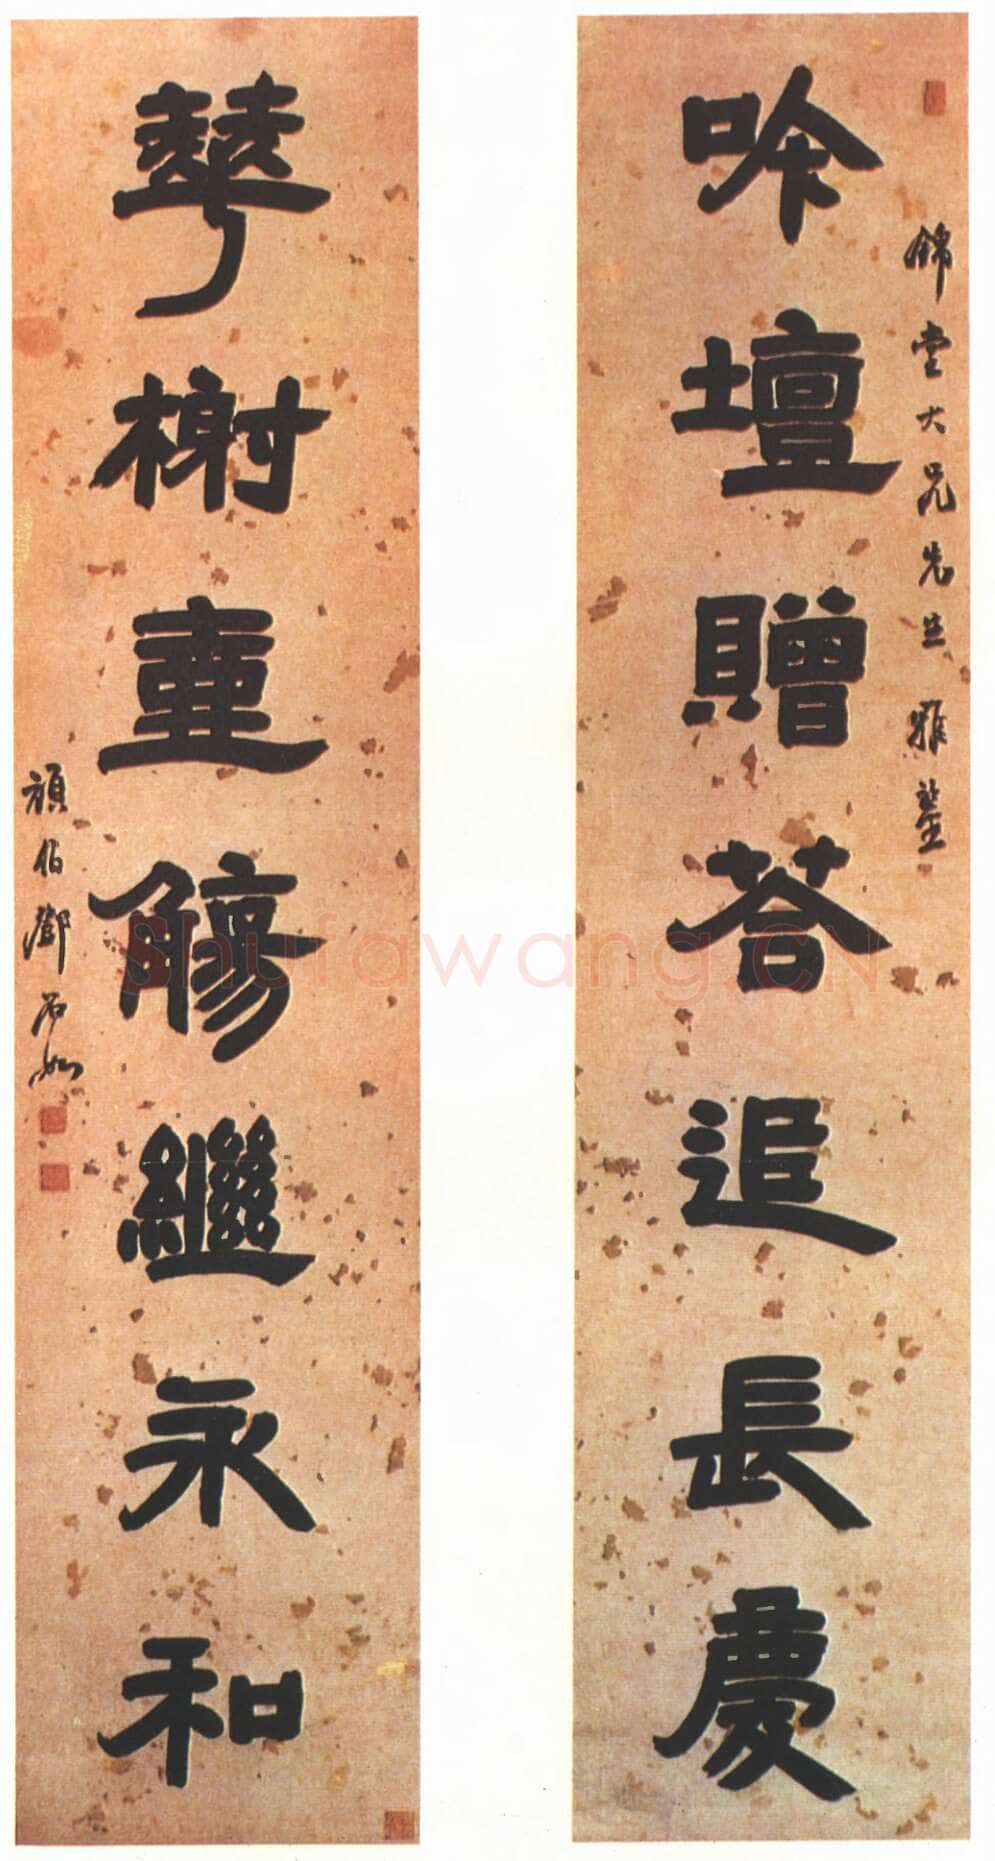 錦堂大兄先生雅鑒
吟壇贈荅追長慶
華榭壺觴繼永和
頑伯鄧石如
Shufawang.CN